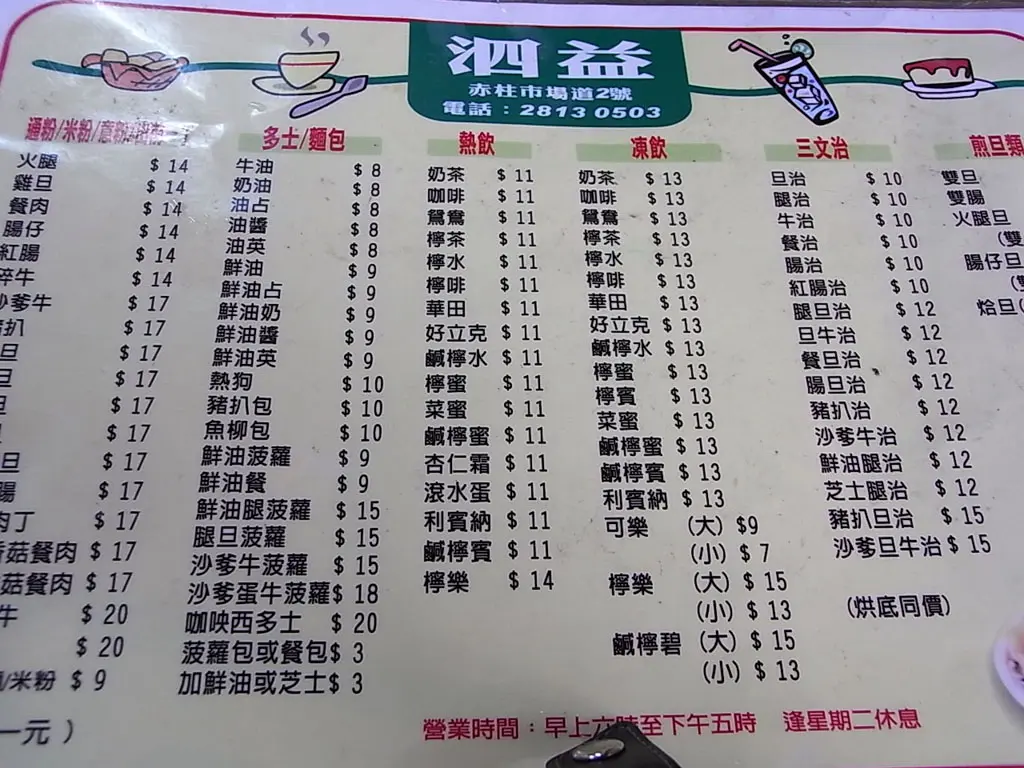 泗益
赤柱市場道2號
電話：2813 0503
通粉/米粉/意粉
火腿 $ 14
雞旦 $ 14
餐肉 $ 14
腸仔 $ 14
紅腸 $ 14
碎牛 $ 14
沙爹牛 $ 17
豬扒 $ 17
旦 $ 17
旦 $ 17
旦 $ 17
$ 17
旦 $ 17
腸 $ 17
肉丁 $ 17
菇餐肉 $ 17
菇餐肉 $ 17
牛 $ 20
$ 20
/米粉 $ 9
一元）
多士/麵包
牛油 $ 8
奶油 $ 8
油占 $ 8
油醬 $ 8
油英 $ 8
鮮油 $ 9
鮮油占 $ 9
鮮油奶 $ 9
鮮油醬 $ 9
鮮油英 $ 9
熱狗 $ 10
豬扒包 $ 10
魚柳包 $ 10
鮮油菠蘿 $ 9
鮮油餐 $ 9
鮮油腿菠蘿 $ 15
腿旦菠蘿 $ 15
沙爹牛菠蘿 $ 15
沙爹蛋牛菠蘿$ 18
咖央西多士 $ 20
菠蘿包或餐包$ 3
加鮮油或芝士$ 3
熱飲
奶茶 $ 11
咖啡 $ 11
鴛鴦 $ 11
檸茶 $ 11
檸水 $ 11
檸啡 $ 11
華田 $ 11
好立克 $ 11
鹹檸水 $ 11
檸蜜 $ 11
菜蜜 $ 11
鹹檸蜜 $ 11
杏仁霜 $ 11
滾水蛋 $ 11
利賓納 $ 11
鹹檸賓 $ 11
檸樂 $ 14
凍飲
奶茶 $ 13
咖啡 $ 13
鴛鴦 $ 13
檸茶 $ 13
檸水 $ 13
檸啡 $ 13
華田 $ 13
好立克 $ 13
鹹檸水 $ 13
檸蜜 $ 13
檸賓 $ 13
菜蜜 $ 13
鹹檸蜜 $ 13
鹹檸賓 $ 13
利賓納 $ 13
可樂 （大）$9
（小）$ 7
檸樂 （大）$ 15
（小）$ 13
鹹檸碧（大）$ 15
（小）$ 13
三文治
旦治 $ 10
腿治 $ 10
牛治 $ 10
餐治 $ 10
腸治 $ 10
紅腸治 $ 10
腿旦治 $ 12
旦牛治 $ 12
餐旦治 $ 12
腸旦治 $ 12
豬扒治 $ 12
沙爹牛治 $ 12
鮮油腿治 $ 12
芝士腿治 $ 12
豬扒旦治 $ 15
沙爹旦牛治 $ 15
（烘底同價）
煎旦類
雙旦
雙腸
火腿旦
（雙
腸仔旦
（雙
烚旦（
營業時間：早上六時至下午五時 逢星期二休息